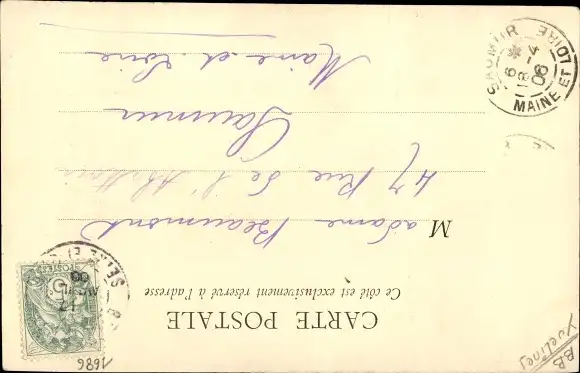 CARTE POSTALE
Ce côté est exclusivement réservé à l'adresse
Madame Beaumont
47 Rue de l'
Saumur
Maine et Loire
SAUMUR
MAINE ET LOIRE
6 *
18 - 4
06
SEINE ET
17
AVRIL
POSTES
5
1686
BB
Yvelines